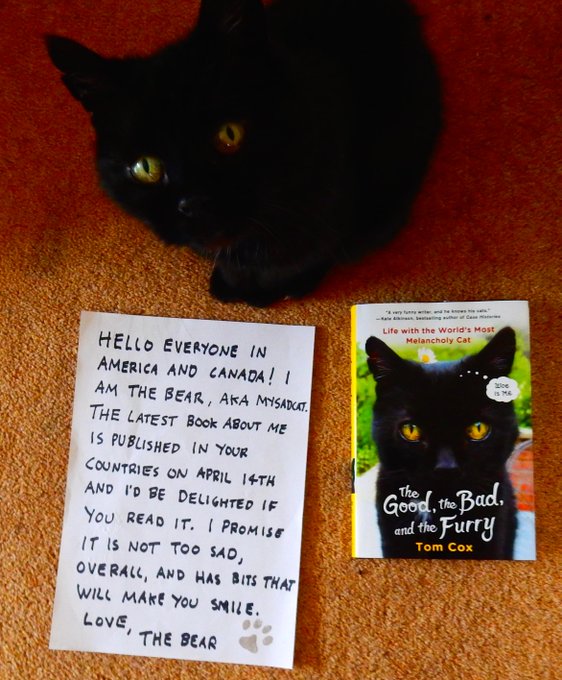 HELLO EVERYONE IN
AMERICA AND CANADA! I
AM THE BEAR, AKA MYSADCAT.
THE LATEST BOOK ABOUT ME
IS PUBLISHED IN YOUR
COUNTRIES ON APRIL 14TH
AND I'D BE DELIGHTED IF
YOU READ IT. I PROMISE
IT IS NOT TOO SAD,
OVERALL, AND HAS BITS THAT
WILL MAKE YOU SMILE.
LOVE,
THE BEAR
"A very funny writer, and he knows his cats."
—Kate Atkinson, bestselling author of Case Histories
Life with the World's Most
Melancholy Cat
Woe
is Me
The
Good, the Bad,
and the Furry
Tom Cox